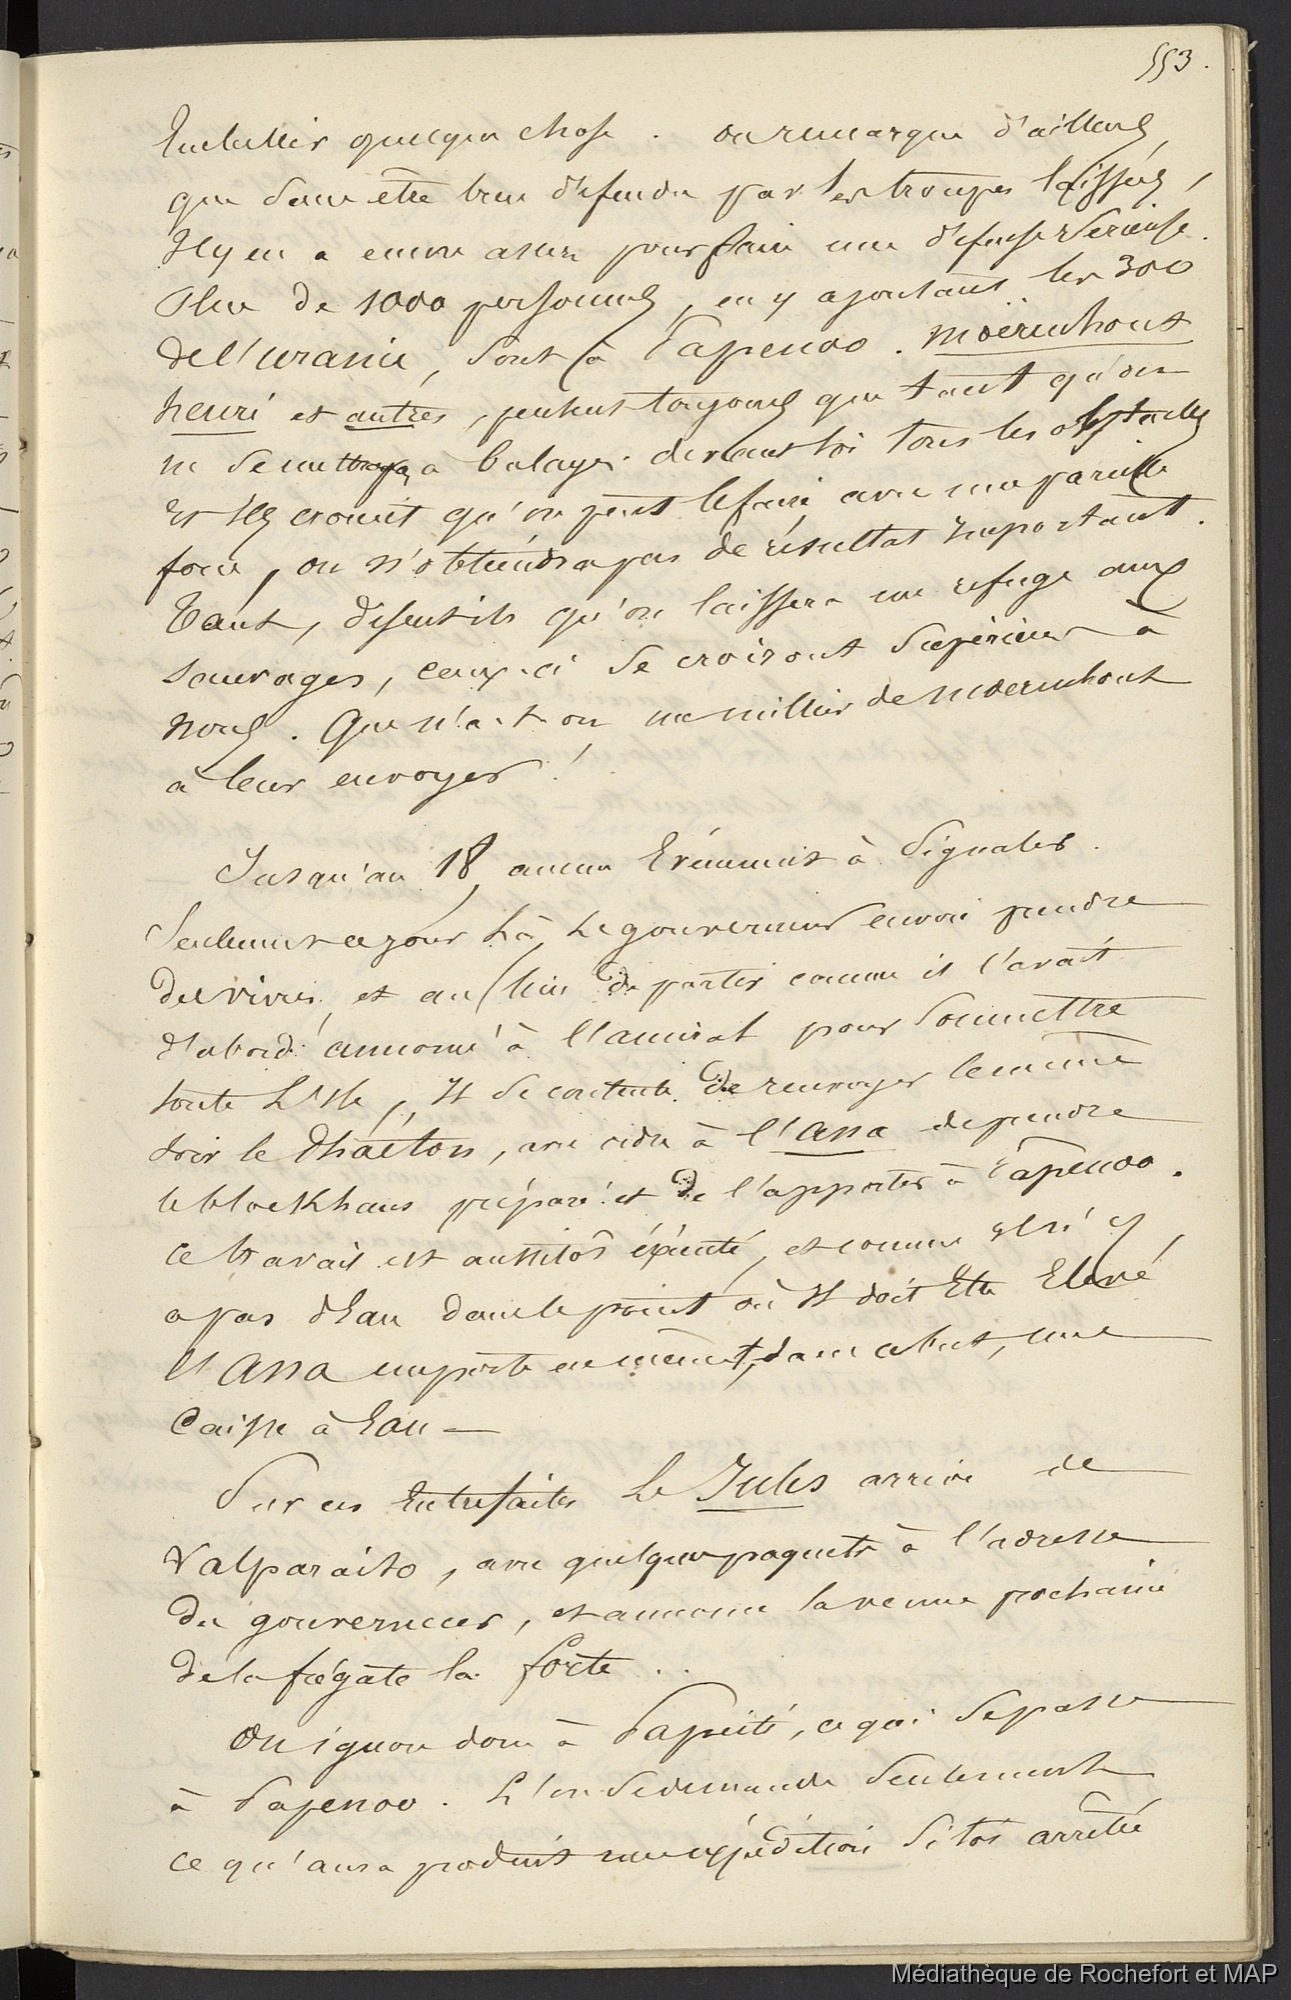 553.
Embellir quelque chose. on remarque d'ailleurs,
que sans être bien défendu par les troupes laissées,
Il y en a encore assez pour faire une défense sérieuse.
Plus de 1000 personnes, en y ajoutant les 300
de l'uranie, sont à Papenoo. Moërenhout
henri et autres, pensent toujours que tant qu'on
ne se mettra pas à balayer devant soi tous les obstacles
et Ils croient qu'on peut le faire avec une pareille
force, on n'obtiendra pas de résultat Important.
Tant, disent ils qu'on laissera un refuge aux
sauvages, ceux-ci se croiront supérieurs à
nous. Que n'a-t-on un millier de Moerenhout
à leur envoyer!
Jusqu'au 18, aucun Evénement à signaler.
Seulement ce jour là, Le gouverneur envoie prendre
des vivres, et au lieu de partir comme il l'avait
d'abord annoncé à l'amiral pour soumettre
toute L'Isle, Il se contente de renvoyer le même
soir le Phaéton, avec ordre à l'Ana de prendre
le blockhaus préparé et de l'apporter à Papenoo.
Ce travail est aussitôt exécuté, et comme Il n'y
a pas d'Eau dans le point où Il doit Etre Elevé
l'Ana emporte en même t, dans ce but, une
Caisse à Eau —
Sur ces Entrefaites Le Jules arrive de
Valparaiso, avec quelques paquets à l'adresse
du gouverneur, et annonce la venue prochaine
de la frégate la forte..
On ignore donc à Papeiti, ce qui se passe
à Papenoo. L'on se demande seulement
ce qu'aura produit une expédition sitôt arrêtée
Médiathèque de Rochefort et MAP